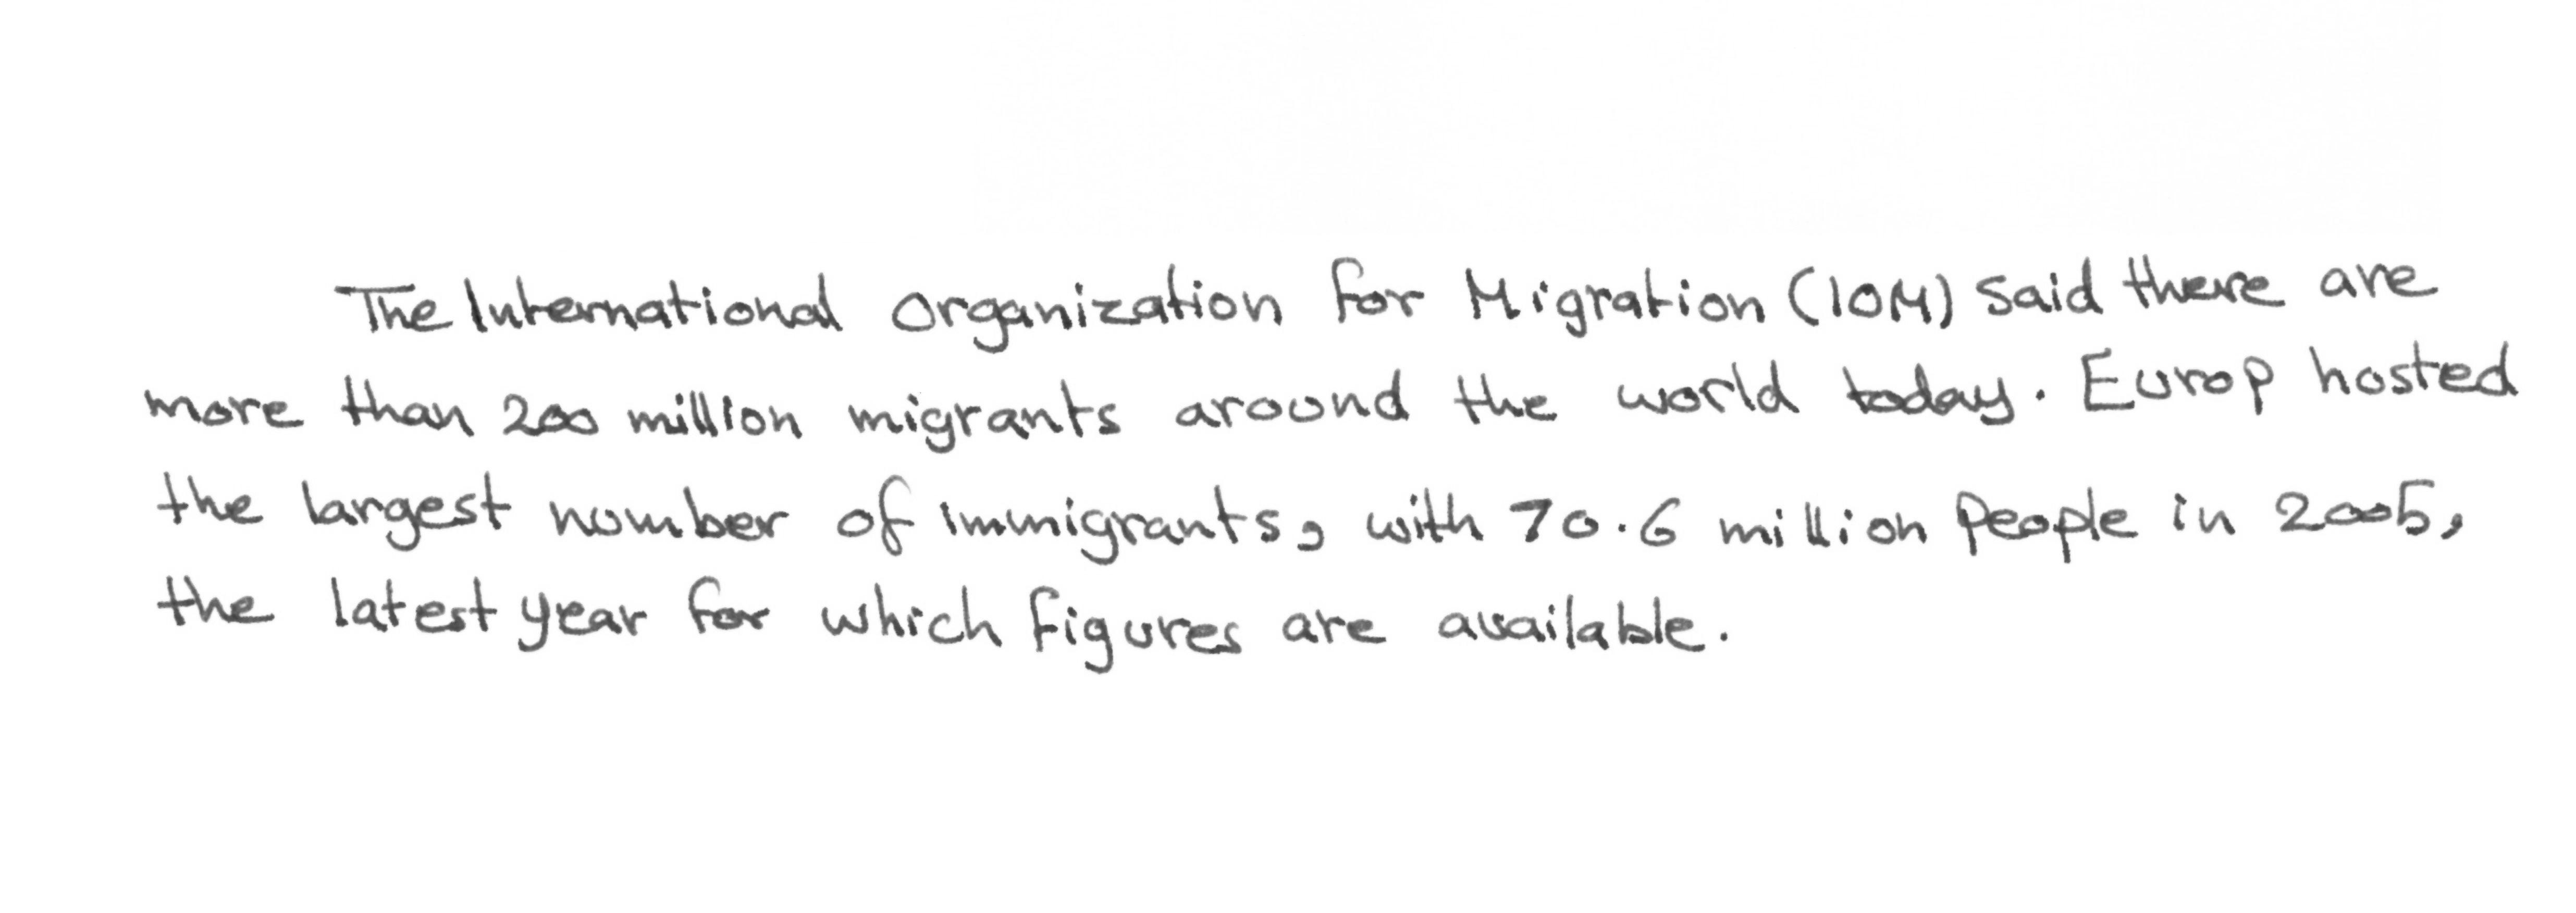 The International Organization for Migration (IOM) said there are
more than 200 million migrants around the world today. Europ hosted
the largest number of immigrants, with 70.6 million people in 2005,
the latest year for which figures are available.